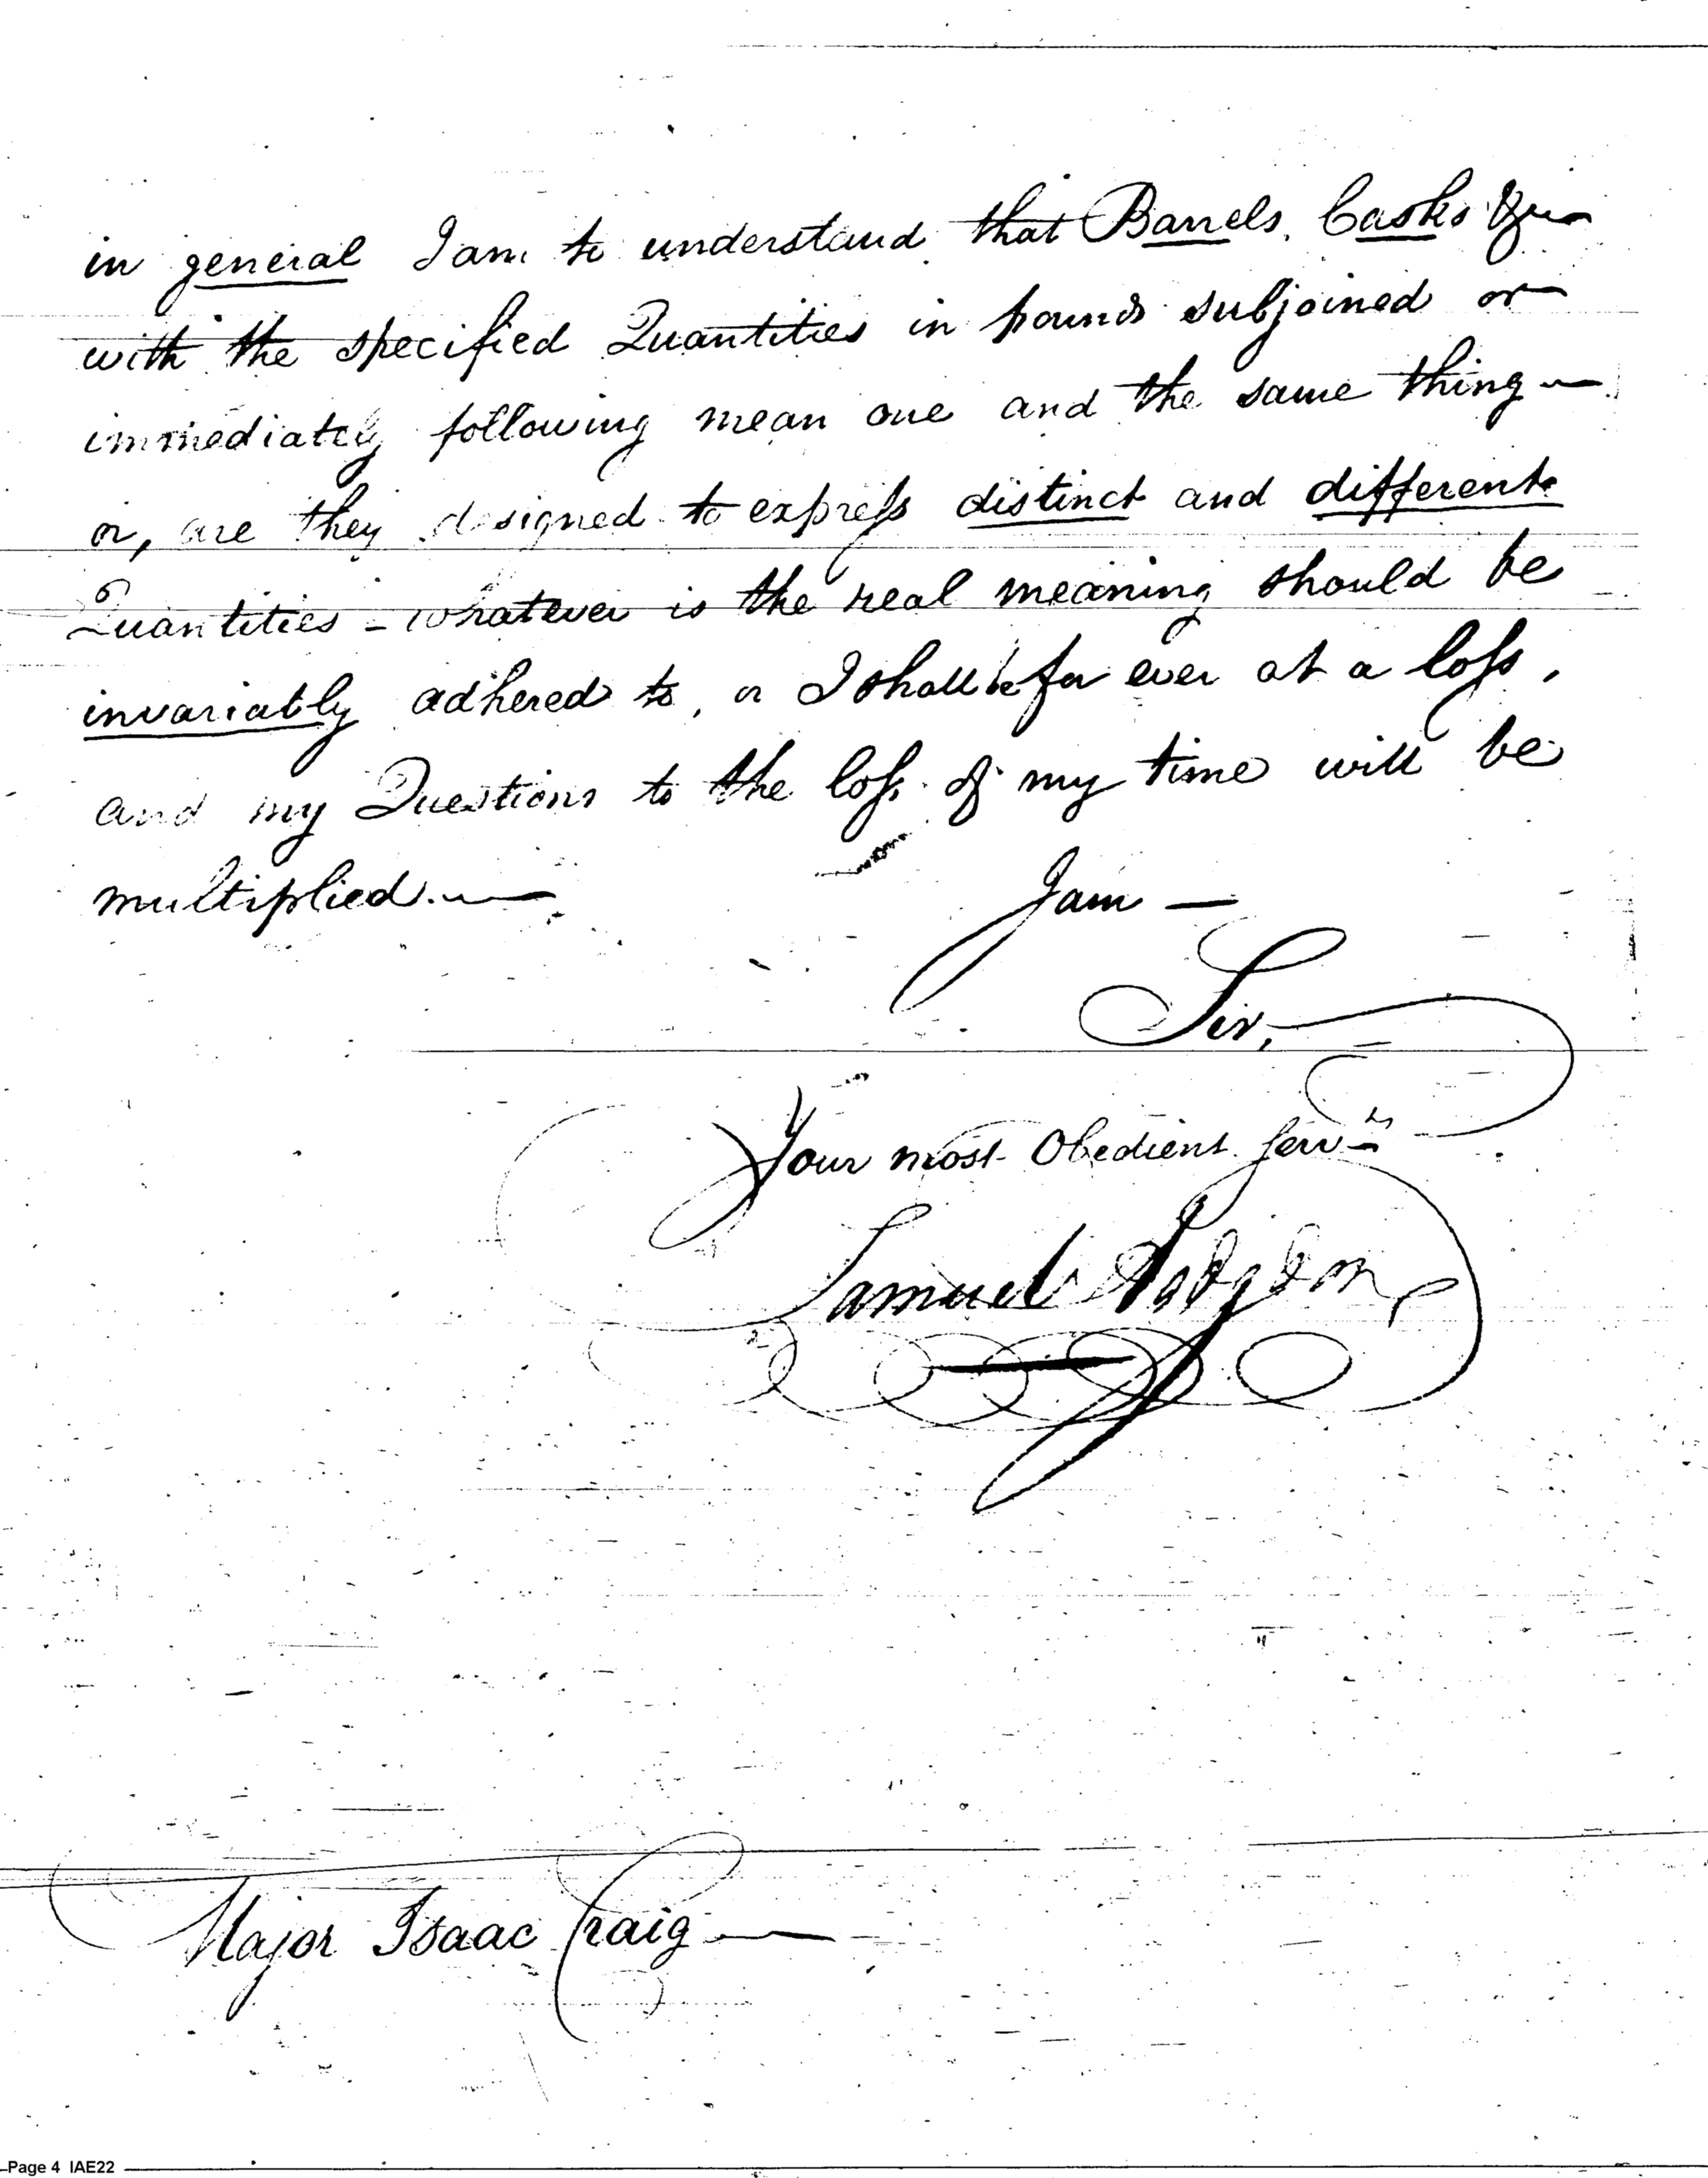 in general I am to understand that Barrels, Casks &c
with the specified Quantities in pounds subjoined or
immediately following mean one and the same thing —
or, are they designed to express distinct and different
Quantities — whatever is the real meaning should be
invariably adhered to, or I shall be for ever at a loss,
and my Questions to the loss of my time will be
multiplied. —
I am —
Sir,
Your most Obedient Servt
Samuel Hodgdon
Major Isaac Craig —
Page 4 IAE22